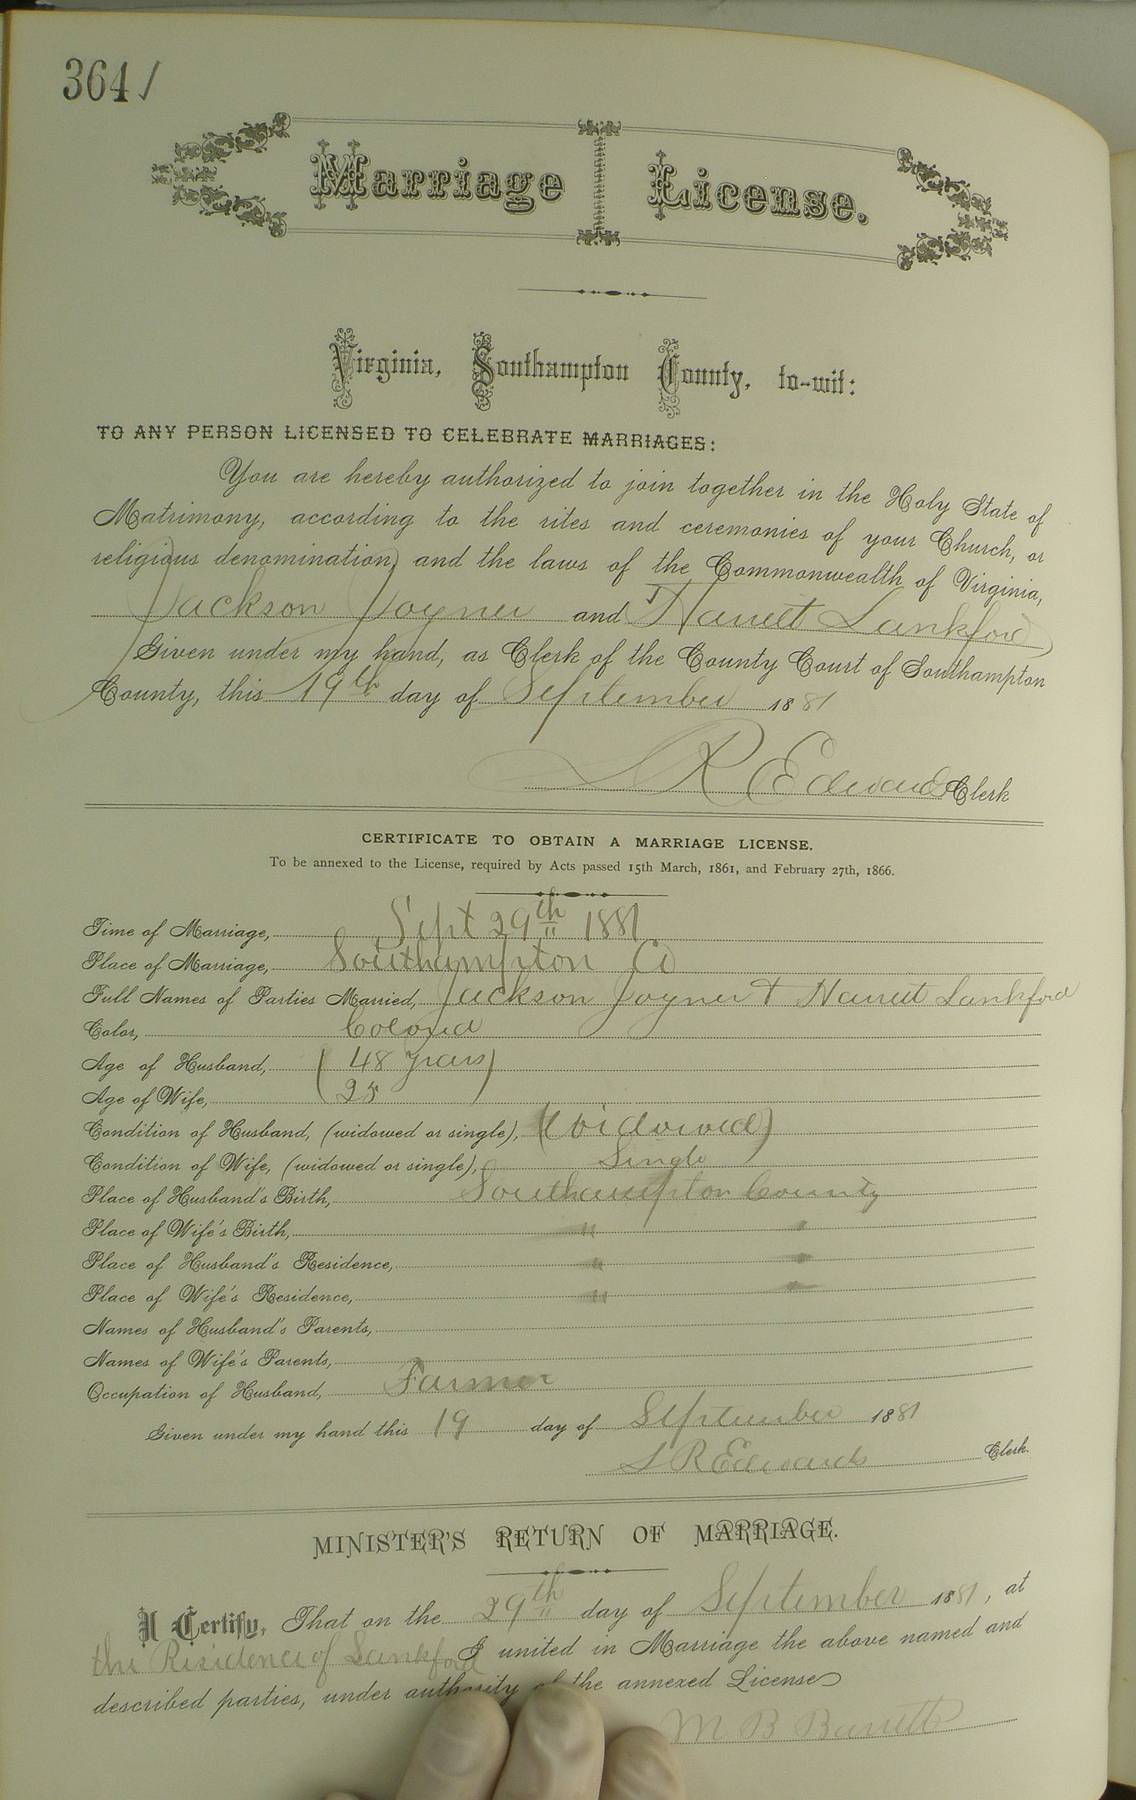 364 /
Marriage License.
Virginia, Southampton County, to-wit:
TO ANY PERSON LICENSED TO CELEBRATE MARRIAGES:
You are hereby authorized to join together in the Holy State of
Matrimony, according to the rites and ceremonies of your Church, or
religious denomination, and the laws of the Commonwealth of Virginia,
Jackson Joyner and Harriet Lankford
Given under my hand, as Clerk of the County Court of Southampton
County, this 19th day of September 1881
L R Edwards Clerk
CERTIFICATE TO OBTAIN A MARRIAGE LICENSE.
To be annexed to the License, required by Acts passed 15th March, 1861, and February 27th, 1866.
Time of Marriage, Sept 29th 1881
Place of Marriage, Southampton Co
Full Names of Parties Married, Jackson Joyner & Harriet Lankford
Color, Colored
Age of Husband, (48 years)
Age of Wife, 25
Condition of Husband, (widowed or single), (Widowed)
Condition of Wife, (widowed or single), Single
Place of Husband's Birth, Southampton County
Place of Wife's Birth, " "
Place of Husband's Residence, " "
Place of Wife's Residence, " "
Names of Husband's Parents,
Names of Wife's Parents,
Occupation of Husband, Farmer
Given under my hand this 19 day of September 1881
L R Edwards Clerk.
MINISTER'S RETURN OF MARRIAGE.
I Certify, That on the 29th day of September 1881, at
the Residence of Lankford I united in Marriage the above named and
described parties, under authority of the annexed License
M B Barrett